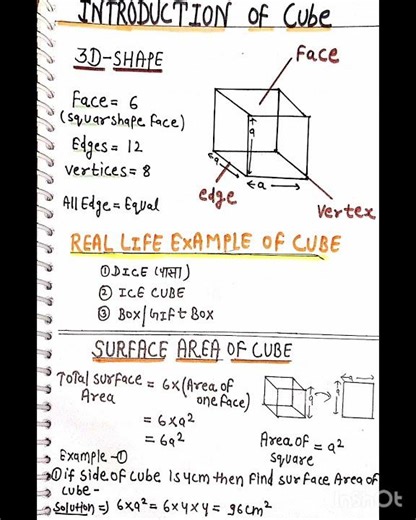 INTRODUCTION of Cube
3D-SHAPE
Face
Face = 6
(squarshape face)
Edges = 12
vertices = 8
All Edge = Equal
a
a
a
edge
vertex
REAL LIFE EXAMPLE OF CUBE
① DICE (पासा)
② ICE CUBE
③ BOX/Gift Box
SURFACE AREA OF CUBE
Total surface Area = 6×(Area of one face)
= 6×a²
= 6a²
a
a
a
Area of square = a²
Example-①
① if side of cube is 4cm then find surface Area of
cube-
Solution ⇒ 6×a² = 6×4×4 = 96cm²
InShot